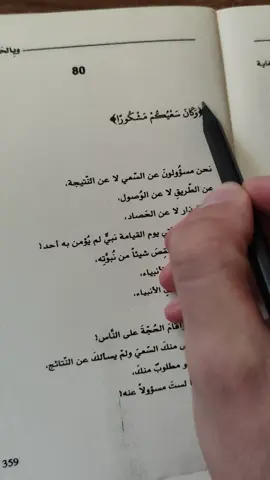 وبالخ
80
﴿وَكَانَ سَعْيُكُمْ مَشْكُورًا﴾
نحن مسؤولونَ عن السّعي لا عن النّتيجة،
عن الطّريقِ لا عن الوُصول،
لا عن الحَصاد،
يوم القيامة نبيٌّ لم يُؤمن به أحد!
شيئاً من نُبوَّتِه،
الأنبياء،
الأنبياء،
أقامَ الحُجّةَ على النَّاس!
منكَ السّعيَ ولمْ يسألكَ عن النّتائج،
مطلوبٌ منكَ،
لستَ مسؤولاً عنه!
359